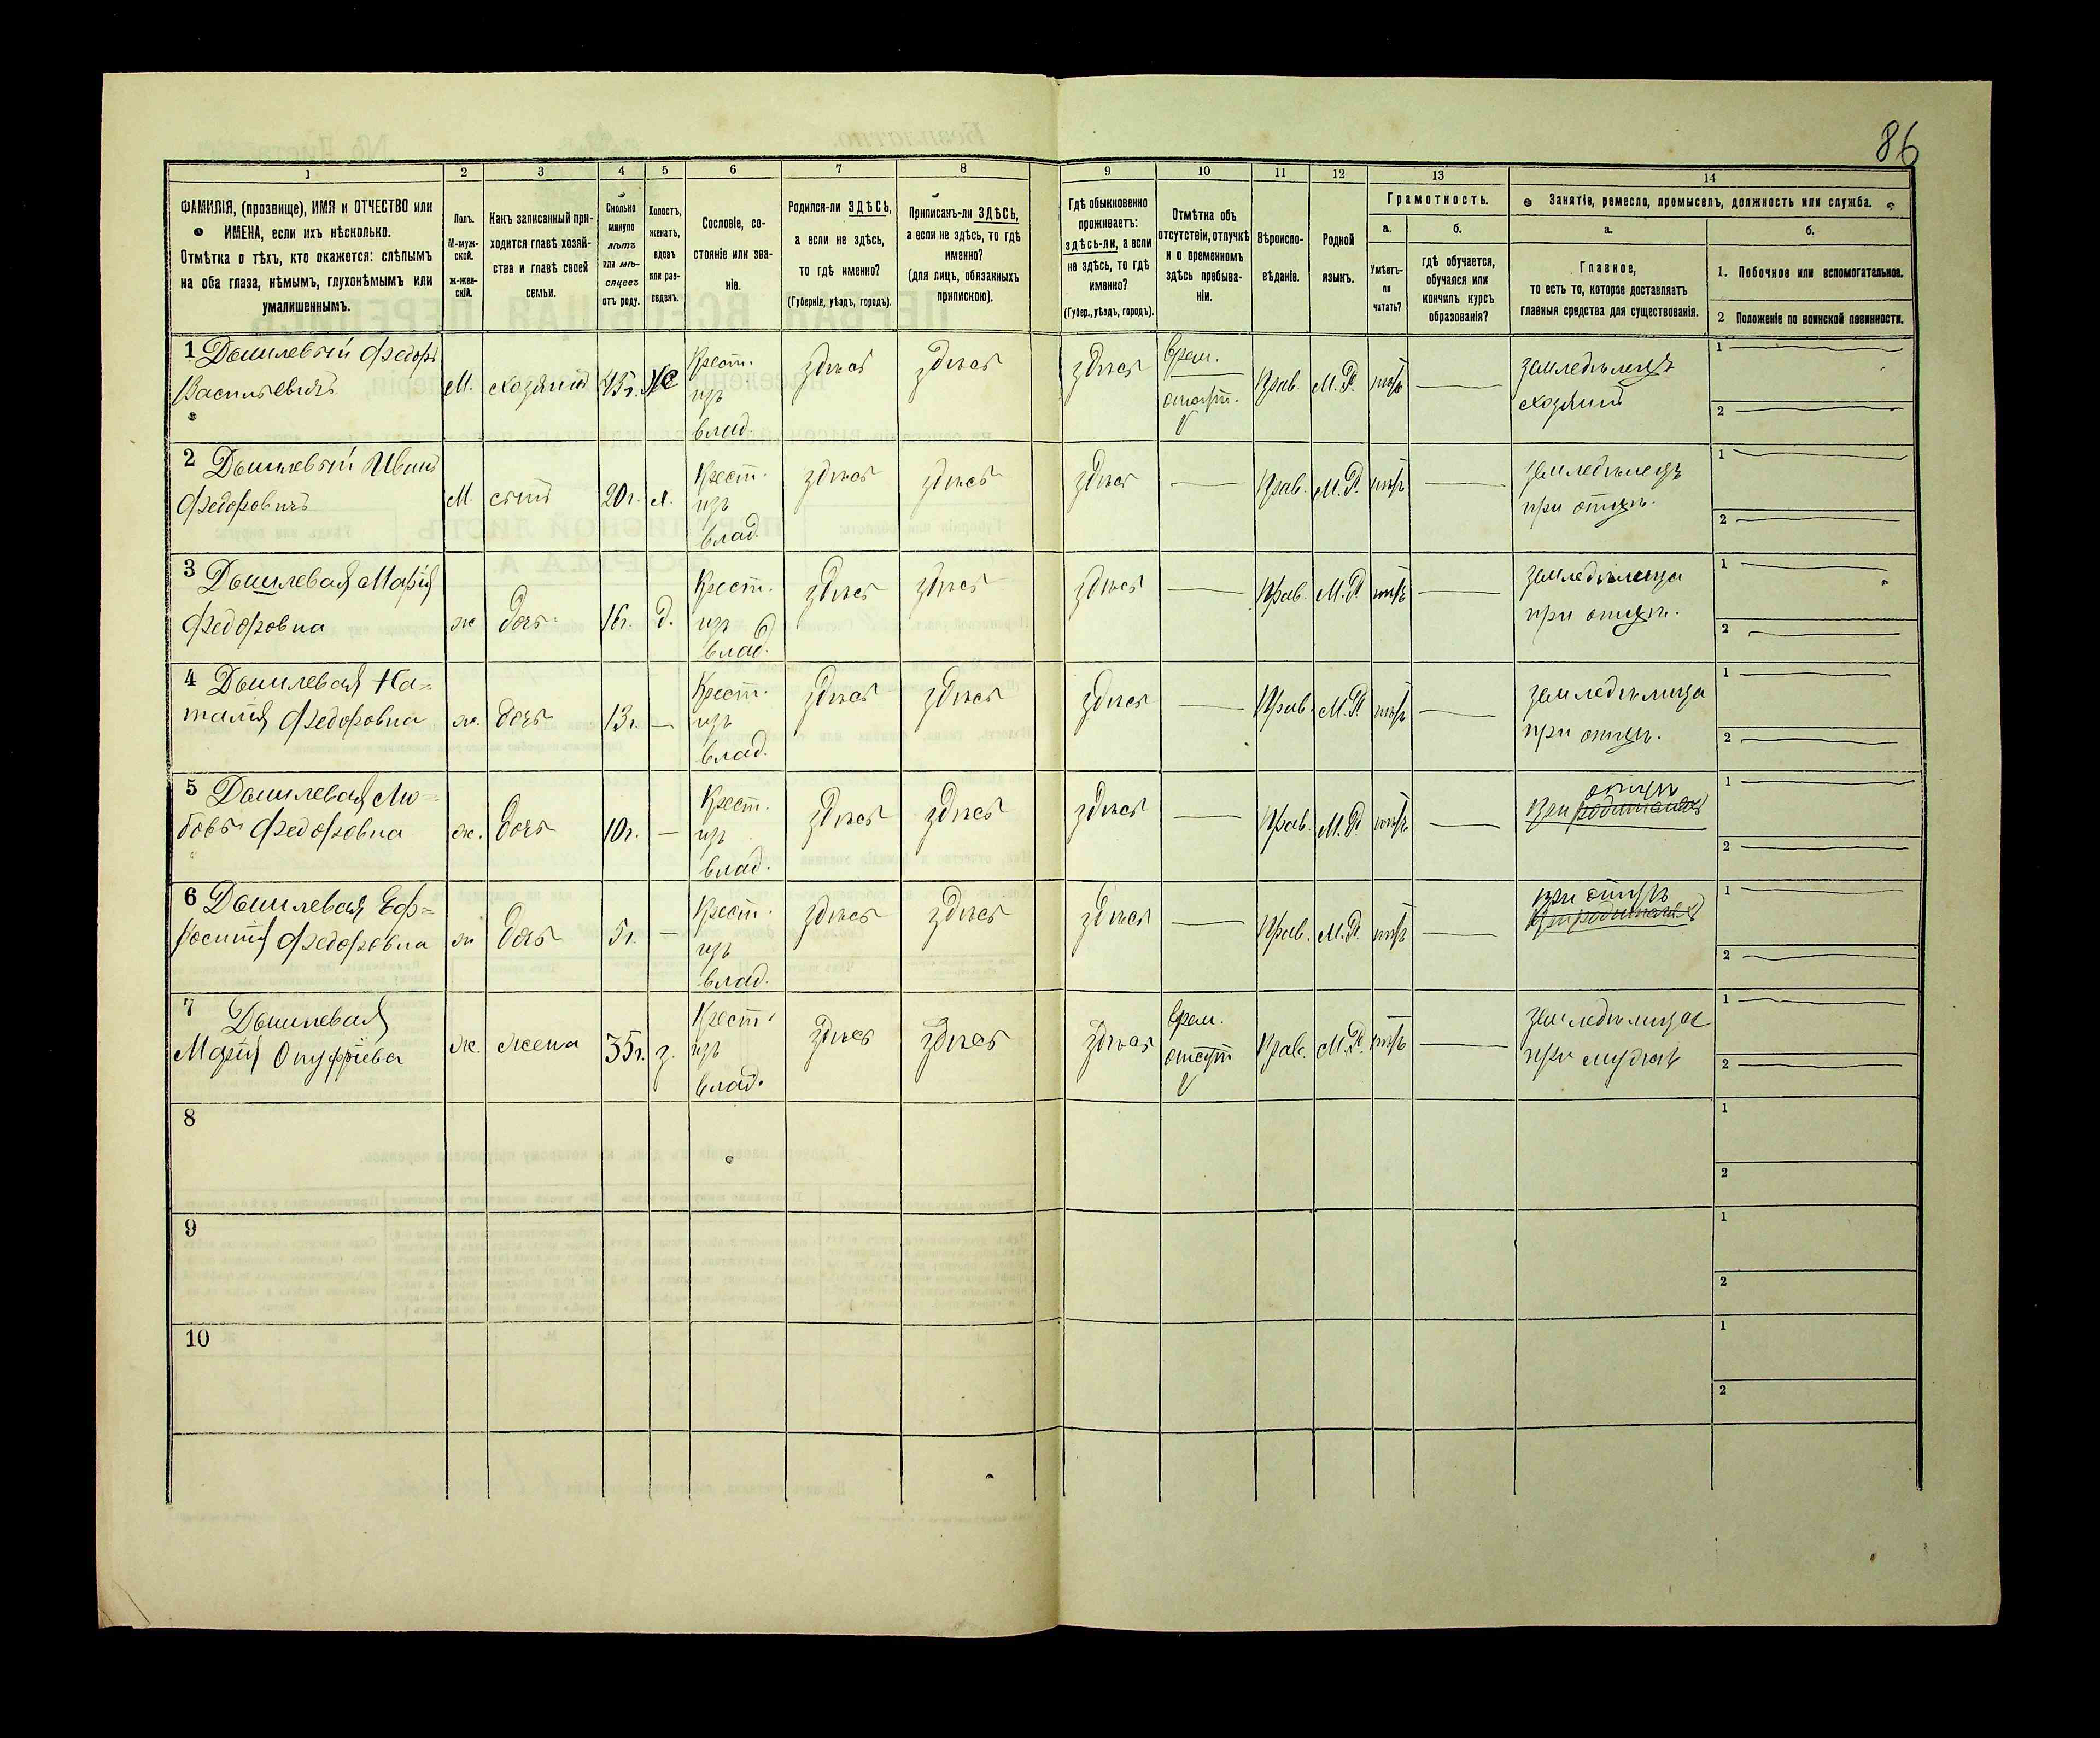 86
1
2
3
4
5
6
7
8
9
10
11
12
13
14
ФАМИЛІЯ, (прозвище), ИМЯ и ОТЧЕСТВО или
ИМЕНА, если ихъ нѣсколько.
Отмѣтка о тѣхъ, кто окажется: слѣпымъ
на оба глаза, нѣмымъ, глухонѣмымъ или
умалишеннымъ.
Полъ.
М-муж-
ской.
Ж-жен-
скій.
Какъ записанный при-
ходится главѣ хозяй-
ства и главѣ своей
семьи.
Сколько
минуло
лѣтъ
или мѣ-
сяцевъ
отъ роду.
Холостъ,
женатъ,
вдовъ
или раз-
веденъ.
Сословіе, со-
стояніе или зва-
ніе.
Родился-ли ЗДѢСЬ,
а если не здѣсь,
то гдѣ именно?
(Губернія, уѣздъ, городъ).
Приписанъ-ли ЗДѢСЬ,
а если не здѣсь, то гдѣ
именно?
(для лицъ, обязанныхъ
припискою).
Гдѣ обыкновенно
проживаетъ:
здѣсь-ли, а если
не здѣсь, то гдѣ
именно?
(Губер., уѣздъ, городъ).
Отмѣтка объ
отсутствіи, отлучкѣ
и о временномъ
здѣсь пребыва-
ніи.
Вѣроиспо-
вѣданіе.
Родной
языкъ.
Грамотность.
а.
Умѣетъ-
ли
читать?
б.
гдѣ обучается,
обучался или
кончилъ курсъ
образованія?
Занятіе, ремесло, промыселъ, должность или служба.
а.
Главное,
то есть то, которое доставляетъ
главныя средства для существованія.
б.
1. Побочное или вспомогательное.
2 Положеніе по воинской повинности.
1 Дышлевый Федоръ
Васильевичъ
М. хозяинъ 45г. Же
Крест.
изъ
влад.
здѣсь здѣсь здѣсь
врем.
отсут.
Прав. М.Р. нѣтъ
земледѣлецъ
хозяинъ
1
2
2 Дышлевый Иванъ
Федоровичъ
М. сынъ 20г. х.
Крест.
изъ
влад.
здѣсь здѣсь здѣсь Прав. М.Р. нѣтъ
земледѣлецъ
при отцѣ.
1
2
3 Дышлевая Марія
Федоровна
ж дочь 16г. д.
Крест.
изъ
влад.
здѣсь здѣсь здѣсь Прав. М.Р. нѣтъ
земледѣлица
при отцѣ.
1
2
4 Дышлевая На=
талія Федоровна
ж. дочь 13г. —
Крест.
изъ
влад.
здѣсь здѣсь здѣсь Прав. М.Р. нѣтъ
земледѣлица
при отцѣ.
1
2
5 Дышлевая Лю=
бовь Федоровна
ж. дочь 10г. —
Крест.
изъ
влад.
здѣсь здѣсь здѣсь Прав. М.Р. нѣтъ
отцѣ
при родителяхъ
1
2
6 Дышлевая Еф=
росинія Федоровна
ж дочь 5г. —
Крест.
изъ
влад.
здѣсь здѣсь здѣсь Прав. М.Р. нѣтъ
при отцѣ
при родителяхъ
1
2
7 Дышлевая
Марія Онуфріева
ж. жена 35г. з.
Крест.
изъ
влад.
здѣсь здѣсь здѣсь
врем.
отсут
Прав. М.Р. нѣтъ
земледѣлица
при мужѣ
1
2
8
1
2
9
1
2
10
1
2